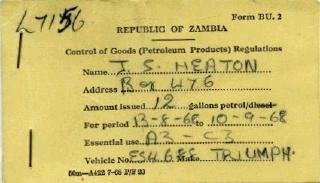 L7156
Form BU. 2
REPUBLIC OF ZAMBIA
Control of Goods (Petroleum Products) Regulations
Name J. S. HEATON
Address Box 476
Amount issued 12 gallons petrol/diesel
For period 13-8-68 to 10-9-68
Essential use A3 - C3
Vehicle No. Make TRIUMPH.
50m—A422 7-68 P/P 20